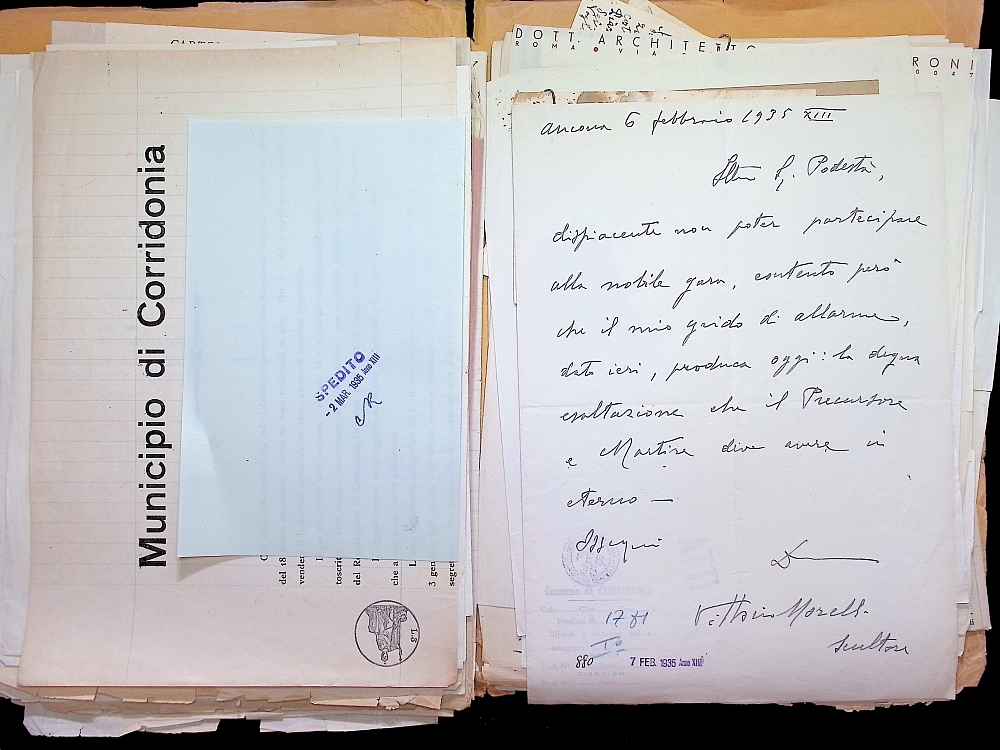 Municipio di Corridonia
SPEDITO
- 2 MAR 1935 Anno XIII
del 18
vende
toscri
del Re
che a
3 gen
segre
L. 3
DOTT. ARCHITETTO
ROMA VIA
RONI
Ancona 6 febbraio 1935 XIII
Ill.mo Sg. Podestà,
dispiacente non poter partecipare
alla nobile gara, contento però
che il mio grido di allarme,
dato ieri, produca oggi: la degna
esaltazione che il Precursore
e Martire deve avere in
eterno —
Ossequi
Vittorio Morelli
scultore
Comune di CORRIDONIA
1781
880
7 FEB. 1935 Anno XIII